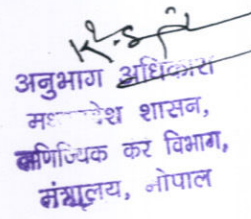 अनुभाग अधिकारी
मध्यप्रदेश शासन,
वाणिज्यिक कर विभाग,
मंत्रालय, भोपाल